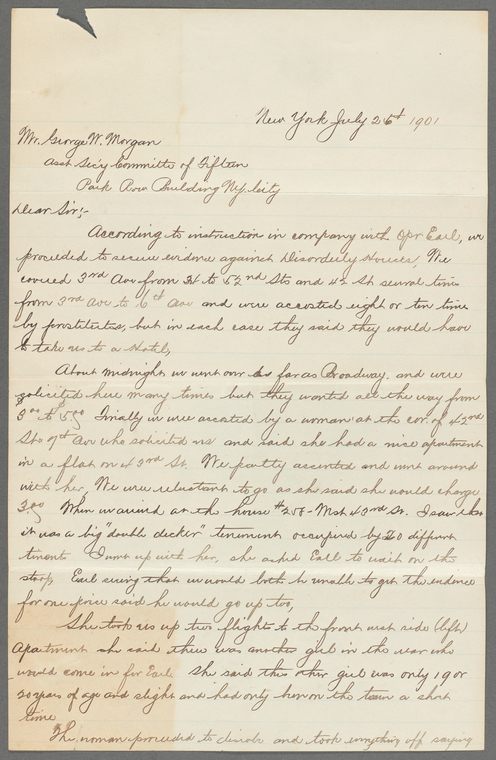 New York July 26th 1901
Mr. George W. Morgan
Asst Sec'y Committee of Fifteen
Park Row Building N.Y. City
Dear Sir;-
According to instruction in company with Opr Earl, we
proceeded to secure evidence against Disorderly Houses, We
covered 3rd Ave from 34 to 52nd Sts and 42 St several time
from 3rd Ave to 6th Ave and were accosted eight or ten time
by prostitutes, but in each case they said they would have
to take us to a Hotel,
About midnight we went over as far as Broadway. and were
solicited here many times but they wanted all the way from
3.00 to 5.00 Finally we were accosted by a woman at the cor. of 42nd
St & 7th Ave who solicited us and said she had a nice apartment
in a flat on 43rd St. We partly assented and went around
with her, We were reluctant to go as she said she would charge
3.00 When we arrived at the house #258-West 43rd St. I saw that
it was a big "double decker" tenement occupied by 20 different
tenants I went up with her, she asked Earl to wait on the
stoop, Earl seeing that we would both be unable to get the evidence
for one price said he would go up too,
She took us up two flights to the front west side (left)
Apartment she said there was another girl in the rear who
would come in for Earl She said this other girl was only 19 or
20 years of age and slight and had only been on the town a short
time
The woman proceeded to disrobe and took everything off saying